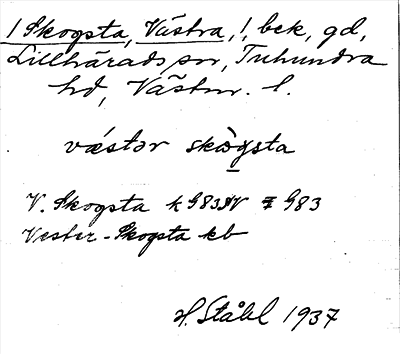 1 Skogsta, Västra, !, bek, gd,
Lillhärads sn, Tuhundra
hd, Västm. l.
væstər skògsta
V. Skogsta k G83 NV G83
Vester-Skogsta kb
H. Ståhl 1937